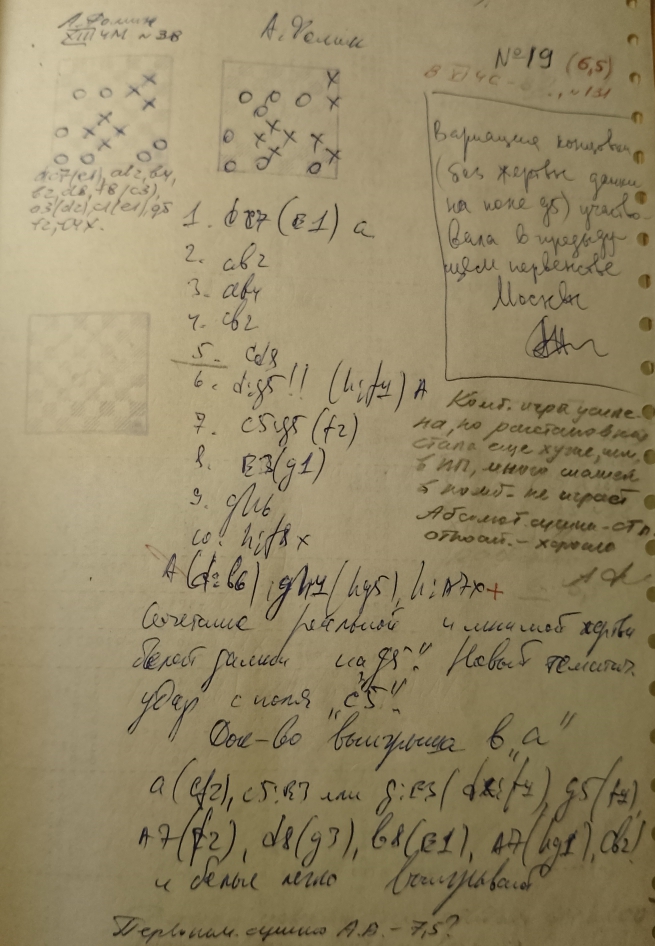 А. Фомин
XIII ЧМ № 38
А. Фомин
№ 19 (6,5)
Вариация концовки
(без жертвы дамки
на поле g5) участво-
вала в предыду-
щем первенстве
Москвы
d:c7(c1), ab2, b4,
1. (e1) a
2. ab2
3. ab4
4. cb2
5. cd8
6. d:g5!! (h:f4) A
7. c5:g5 (f2)
8. e3 (g1)
9. gh6
10. h:f8 x
Комб. игра усиле-
на, но расстановка
стала еще хуже, чем
в ПМ, много шашек
в комб- не играет
Абсолют. оценка - 
относит. - хорошо
A (d:b6), gh4 (hg5), h:A7x+
Сочетание реальной и мнимой жертвы
белой дамки на "g5". Новый тематич.
удар с поля "c5".
Док-во выигрыша в "a"
a (ef2), c5:e3 или g:e3 (f4), g5 (f4),
A7 (f2), d8 (g3), b8 (e1), A7 (hg1), cb2!
и белые легко выигрывают
Первонач. оценка А.А. - 7,5?